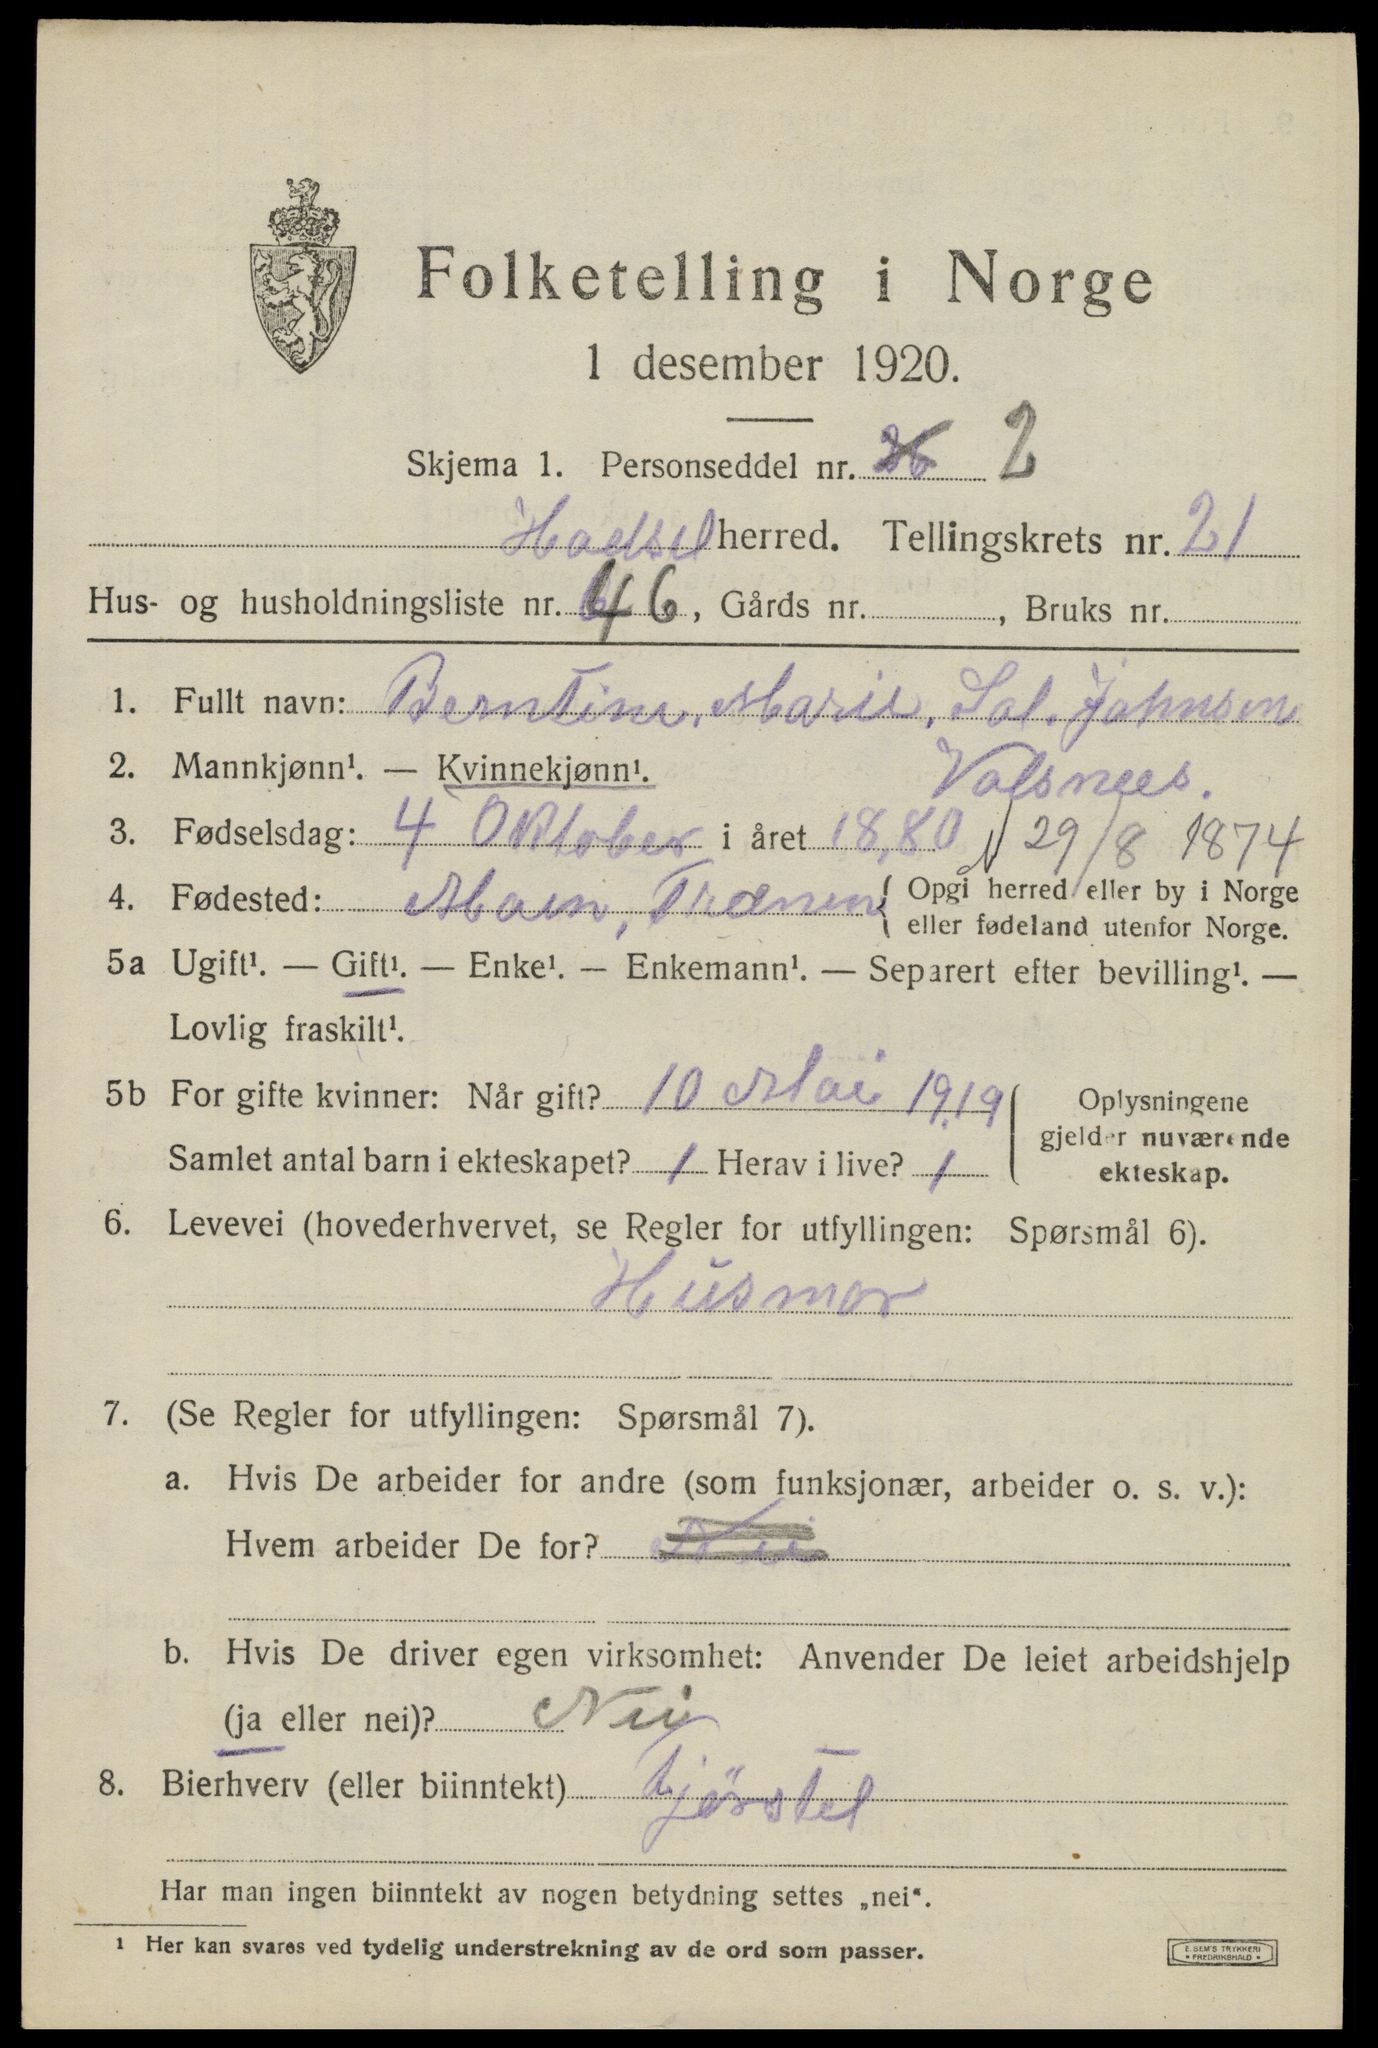 Folketelling i Norge
1 desember 1920.
Skjema 1. Personseddel nr. 2
Hadsel herred. Tellingskrets nr. 21
Hus- og husholdningsliste nr. 46, Gårds nr. , Bruks nr.
1. Fullt navn: Berntine, Marie, Sal. Johnsen
2. Mannkjønn¹. — Kvinnekjønn¹. Valsnees.
3. Fødselsdag: 4 Oktober i året 18,80 29/8 1874
4. Fødested: Moen, Trænen { Opgi herred eller by i Norge
eller fødeland utenfor Norge.
5a Ugift¹. — Gift¹. — Enke¹. — Enkemann¹. — Separert efter bevilling¹. —
Lovlig fraskilt¹.
5b For gifte kvinner: Når gift? 10 Mai 1919
Samlet antal barn i ekteskapet? 1 Herav i live? 1
Oplysningene
gjelder nuværende
ekteskap.
6. Levevei (hovederhvervet, se Regler for utfyllingen: Spørsmål 6).
Husmor
7. (Se Regler for utfyllingen: Spørsmål 7).
a. Hvis De arbeider for andre (som funksjonær, arbeider o. s. v.):
Hvem arbeider De for? Nei
b. Hvis De driver egen virksomhet: Anvender De leiet arbeidshjelp
(ja eller nei)? Nei
8. Bierhverv (eller biinntekt)
Har man ingen biinntekt av nogen betydning settes „nei“.
¹ Her kan svares ved tydelig understrekning av de ord som passer.
E. SEM'S TRYKKERI
• FREDRIKSHALD •